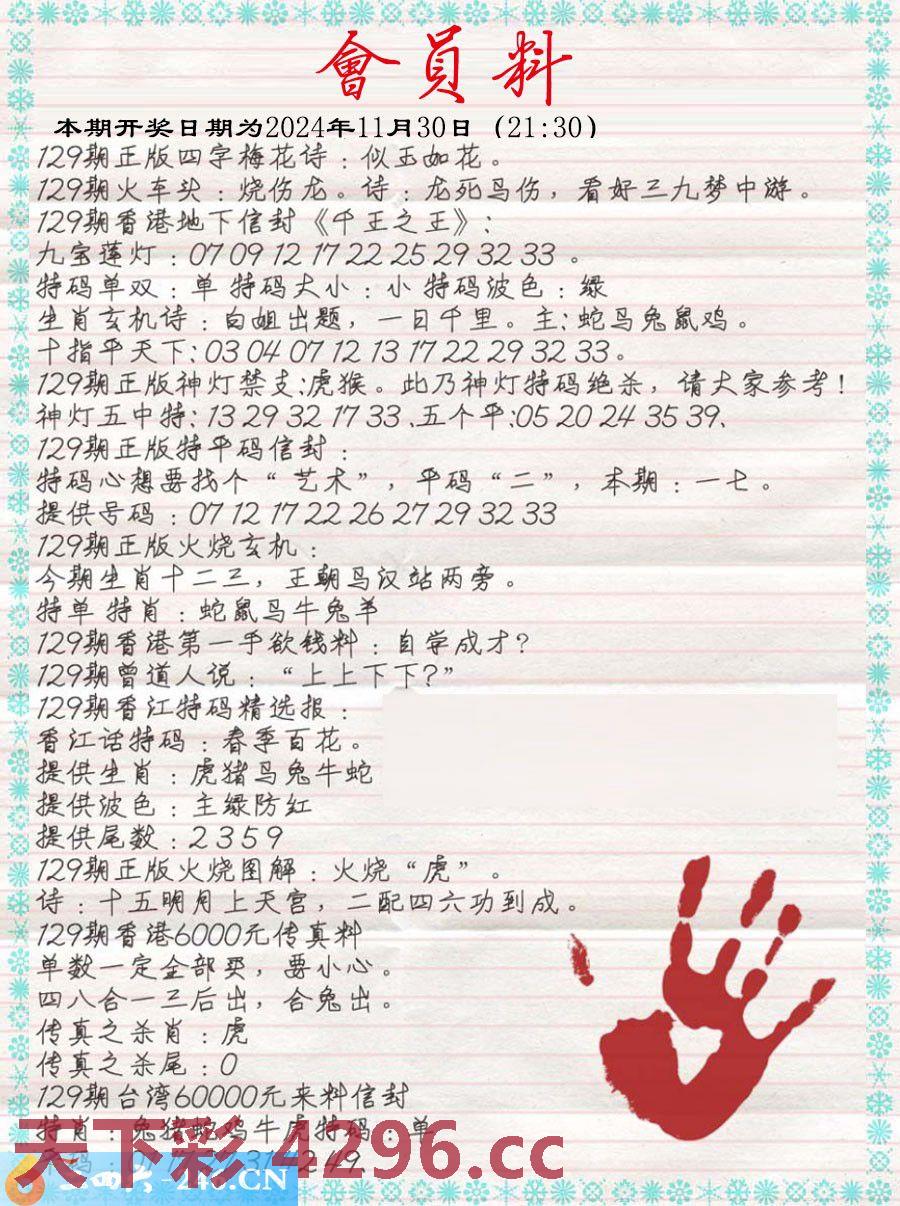 會員料
本期开奖日期为2024年11月30日（21:30）
129期正版四字梅花诗：似玉如花。
129期火车头：烧伤龙。诗：龙死鸟伤，看好三九梦中游。
129期香港地下信封《千王之王》:
九宝莲灯：07 09 12 17 22 25 29 32 33 。
特码单双：单 特码大小：小 特码波色：绿
生肖玄机诗：白姐出题，一日千里。主:蛇马兔鼠鸡。
十指平天下:03 04 07 12 13 17 22 29 32 33。
129期正版神灯禁支:虎猴。此乃神灯特码绝杀，请大家参考！
神灯五中特: 13 29 32 17 33 .五个平:05 20 24 35 39.
129期正版特平码信封：
特码心想要找个“艺术”，平码“二”，本期：一七。
提供号码：07 12 17 22 26 27 29 32 33
129期正版火烧玄机：
今期生肖十二三，王朝马汉站两旁。
特单 特肖：蛇鼠马牛兔羊
129期香港第一手欲钱料：自学成才？
129期曾道人说：“上上下下？”
129期香江特码精选报：
香江话特码：春季百花。
提供生肖：虎猪马兔牛蛇
提供波色：主绿防红
提供尾数：2 3 5 9
129期正版火烧图解：火烧“虎”。
诗：十五明月上天宫，二配四六功到成。
129期香港6000元传真料
单数一定全部买，要小心。
四八合一三后出，合兔出。
传真之杀肖：虎
传真之杀尾：0
129期台湾60000元来料信封
特肖：兔猪蛇鸡牛虎特码：单
天下彩 4296.cc
246.CN